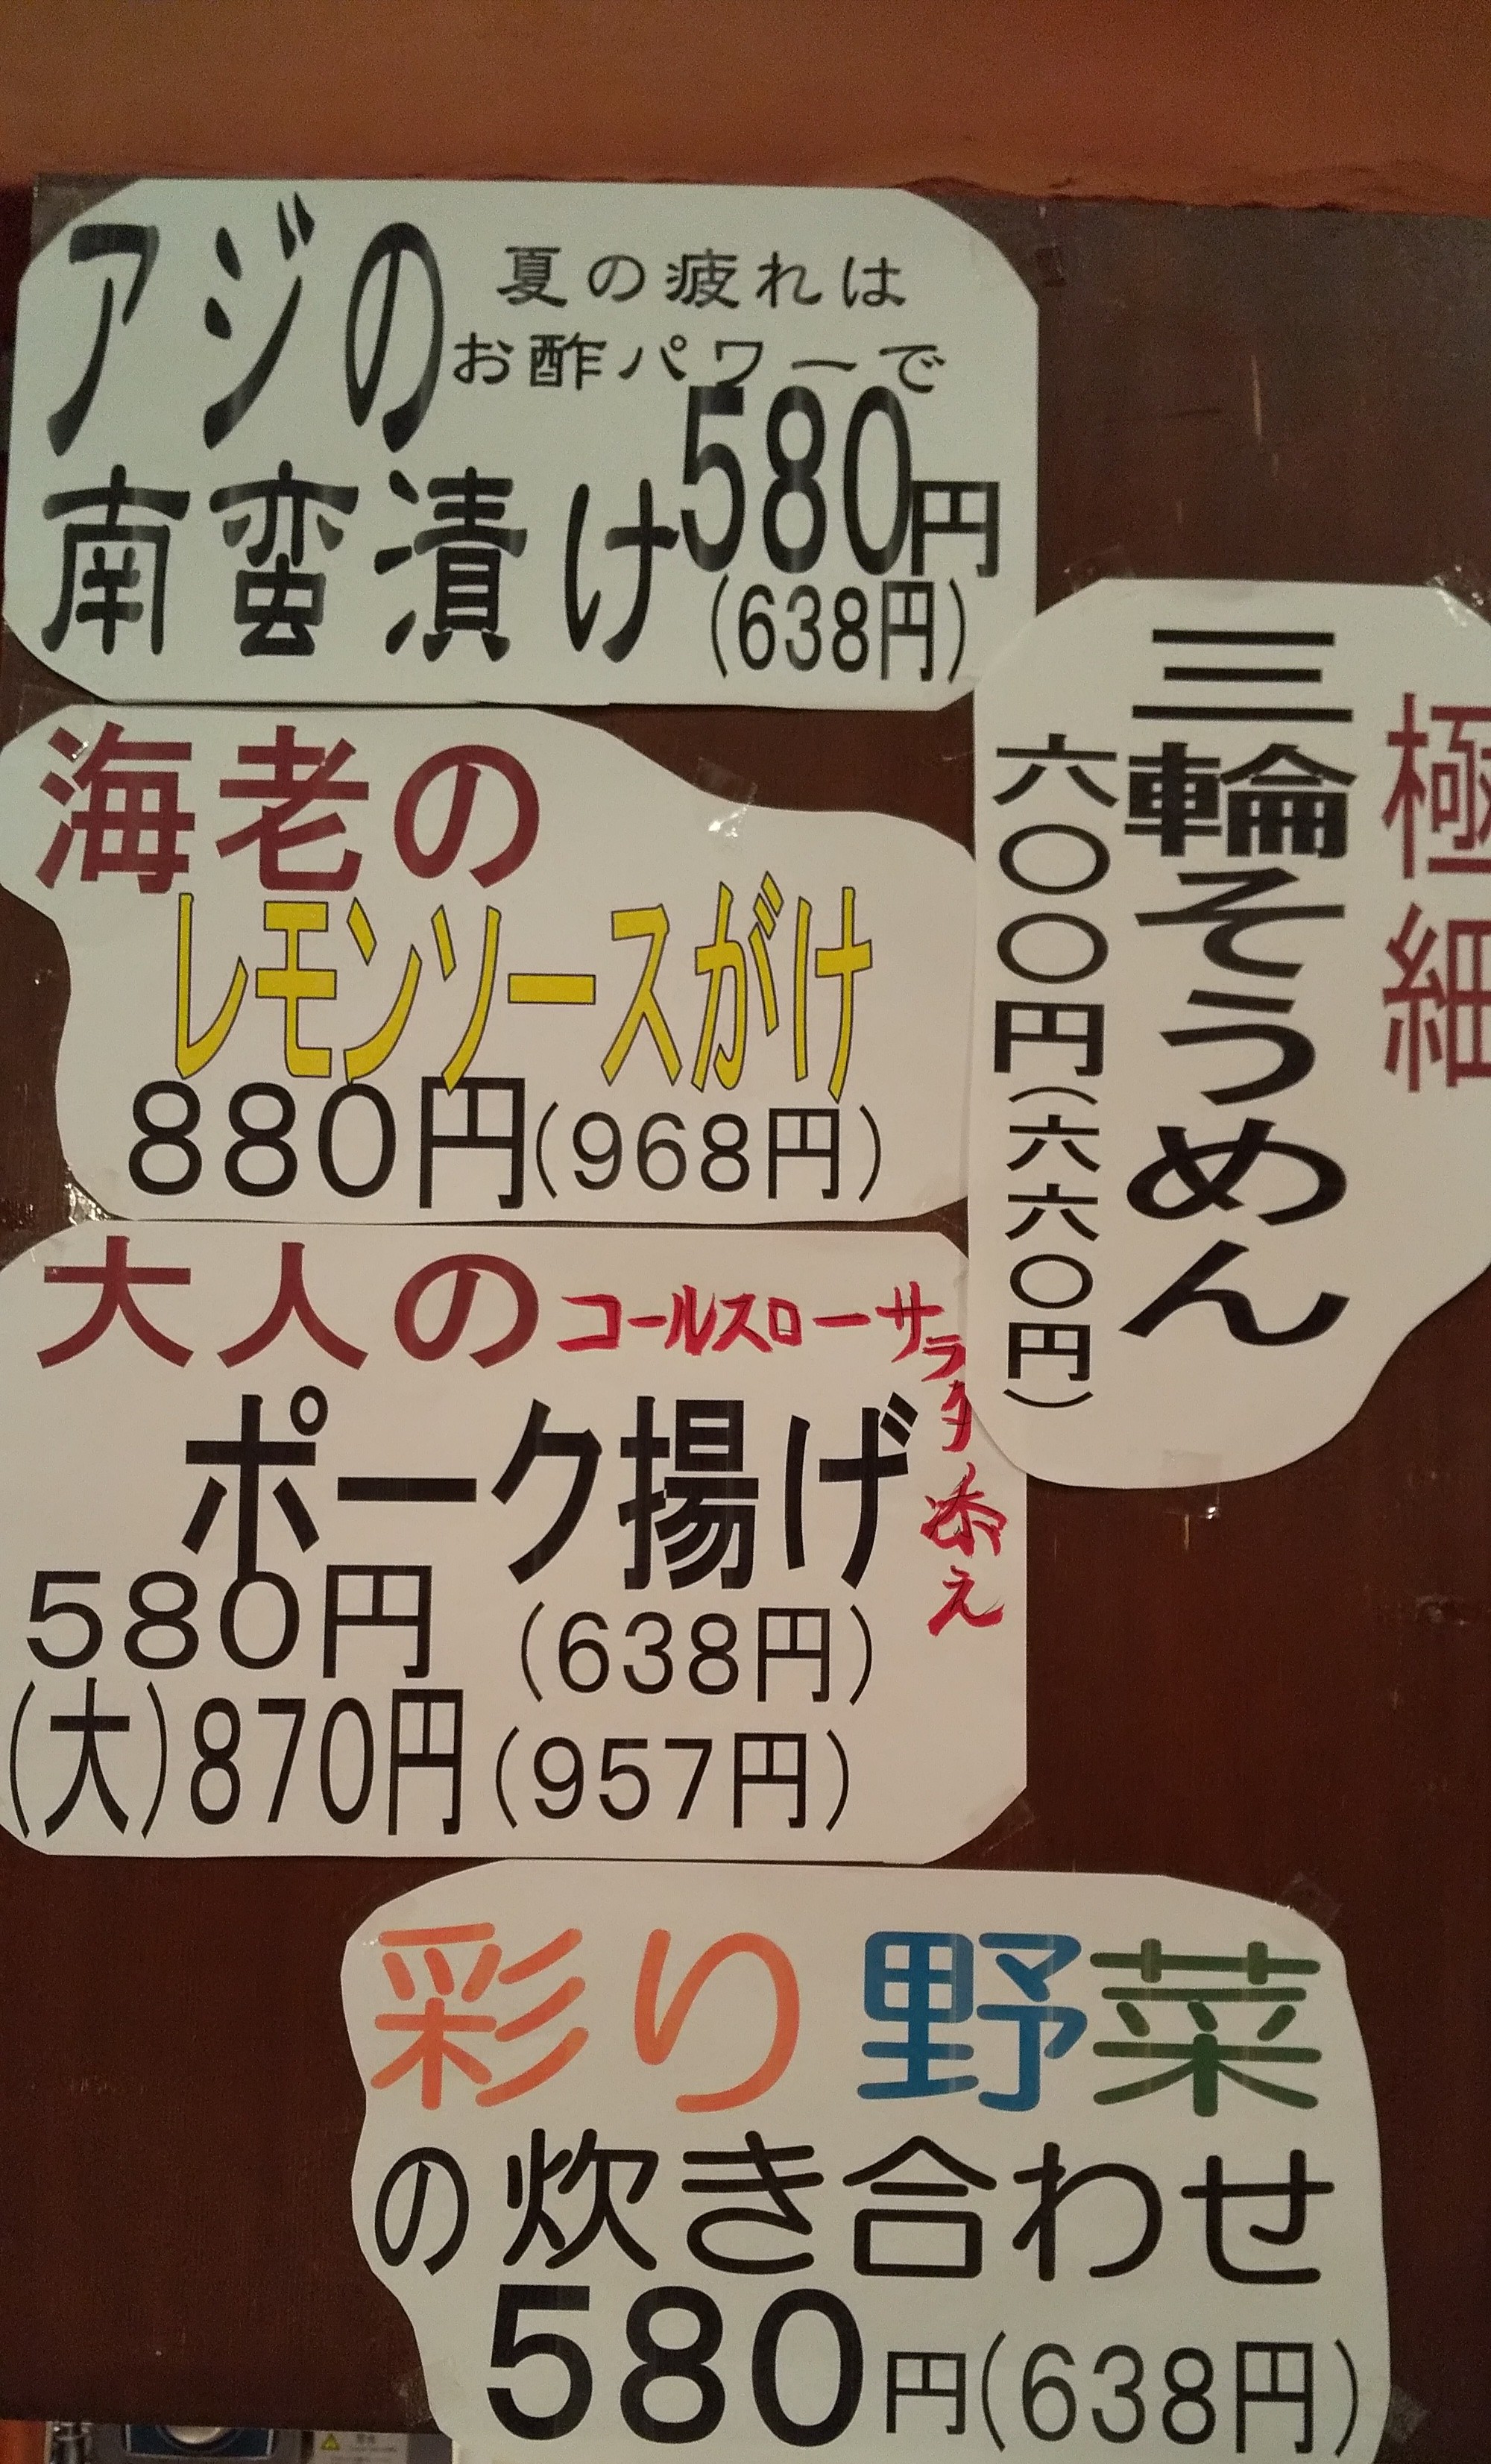 アジの
夏の疲れは
お酢パワーで
南蛮漬け
580円
(638円)
海老の
レモンソースがけ
880円(968円)
大人の
コールスローサラダ添え
ポーク揚げ
580円 (638円)
(大)870円(957円)
極細
三輪そうめん
六〇〇円(六六〇円)
彩り野菜
の炊き合わせ
580円(638円)